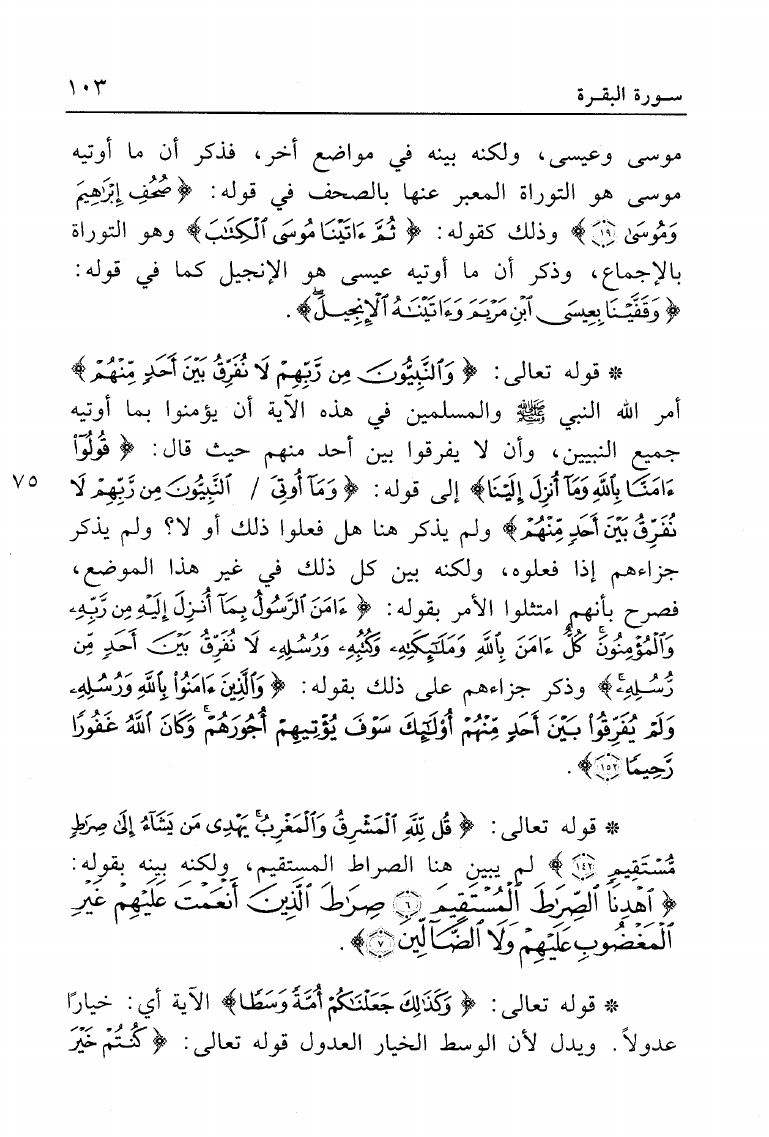 سورة البقرة ١٠٣
موسى وعيسى، ولكنه بينه في مواضع أخر، فذكر أن ما أوتيه
موسى هو التوراة المعبر عنها بالصحف في قوله: ﴿صُحُفِ إِبْرَٰهِيمَ
وَمُوسَىٰ ۝١٩﴾ وذلك كقوله: ﴿ثُمَّ ءَاتَيْنَا مُوسَى ٱلْكِتَٰبَ﴾ وهو التوراة
بالإجماع، وذكر أن ما أوتيه عيسى هو الإنجيل كما في قوله:
﴿وَقَفَّيْنَا بِعِيسَى ٱبْنِ مَرْيَمَ وَءَاتَيْنَٰهُ ٱلْإِنجِيلَۖ﴾.
* قوله تعالى: ﴿وَٱلنَّبِيُّونَ مِن رَّبِّهِمْ لَا نُفَرِّقُ بَيْنَ أَحَدٍ مِّنْهُمْ﴾
أمر الله النبي ﷺ والمسلمين في هذه الآية أن يؤمنوا بما أوتيه
جميع النبيين، وأن لا يفرقوا بين أحد منهم حيث قال: ﴿قُولُوٓا۟
ءَامَنَّا بِٱللَّهِ وَمَآ أُنزِلَ إِلَيْنَا﴾ إلى قوله: ﴿وَمَآ أُوتِىَ / ٱلنَّبِيُّونَ مِن رَّبِّهِمْ لَا ٧٥
نُفَرِّقُ بَيْنَ أَحَدٍ مِّنْهُمْ﴾ ولم يذكر هنا هل فعلوا ذلك أو لا؟ ولم يذكر
جزاءهم إذا فعلوه، ولكنه بين كل ذلك في غير هذا الموضع،
فصرح بأنهم امتثلوا الأمر بقوله: ﴿ءَامَنَ ٱلرَّسُولُ بِمَآ أُنزِلَ إِلَيْهِ مِن رَّبِّهِۦ
وَٱلْمُؤْمِنُونَۚ كُلٌّ ءَامَنَ بِٱللَّهِ وَمَلَٰٓئِكَتِهِۦ وَكُتُبِهِۦ وَرُسُلِهِۦ لَا نُفَرِّقُ بَيْنَ أَحَدٍ مِّن
رُّسُلِهِۦۚ﴾ وذكر جزاءهم على ذلك بقوله: ﴿وَٱلَّذِينَ ءَامَنُوا۟ بِٱللَّهِ وَرُسُلِهِۦ
وَلَمْ يُفَرِّقُوا۟ بَيْنَ أَحَدٍ مِّنْهُمْ أُو۟لَٰٓئِكَ سَوْفَ يُؤْتِيهِمْ أُجُورَهُمْۗ وَكَانَ ٱللَّهُ غَفُورًا
رَّحِيمًا ۝١٥٢﴾.
* قوله تعالى: ﴿قُل لِّلَّهِ ٱلْمَشْرِقُ وَٱلْمَغْرِبُۚ يَهْدِى مَن يَشَآءُ إِلَىٰ صِرَٰطٍ
مُّسْتَقِيمٍ ۝١٤٢﴾ لم يبين هنا الصراط المستقيم، ولكنه بينه بقوله:
﴿ٱهْدِنَا ٱلصِّرَٰطَ ٱلْمُسْتَقِيمَ ۝٦ صِرَٰطَ ٱلَّذِينَ أَنْعَمْتَ عَلَيْهِمْ غَيْرِ
ٱلْمَغْضُوبِ عَلَيْهِمْ وَلَا ٱلضَّآلِّينَ ۝٧﴾.
* قوله تعالى: ﴿وَكَذَٰلِكَ جَعَلْنَٰكُمْ أُمَّةً وَسَطًا﴾ الآية أي: خيارًا
عدولاً. ويدل لأن الوسط الخيار العدول قوله تعالى: ﴿كُنتُمْ خَيْرَ